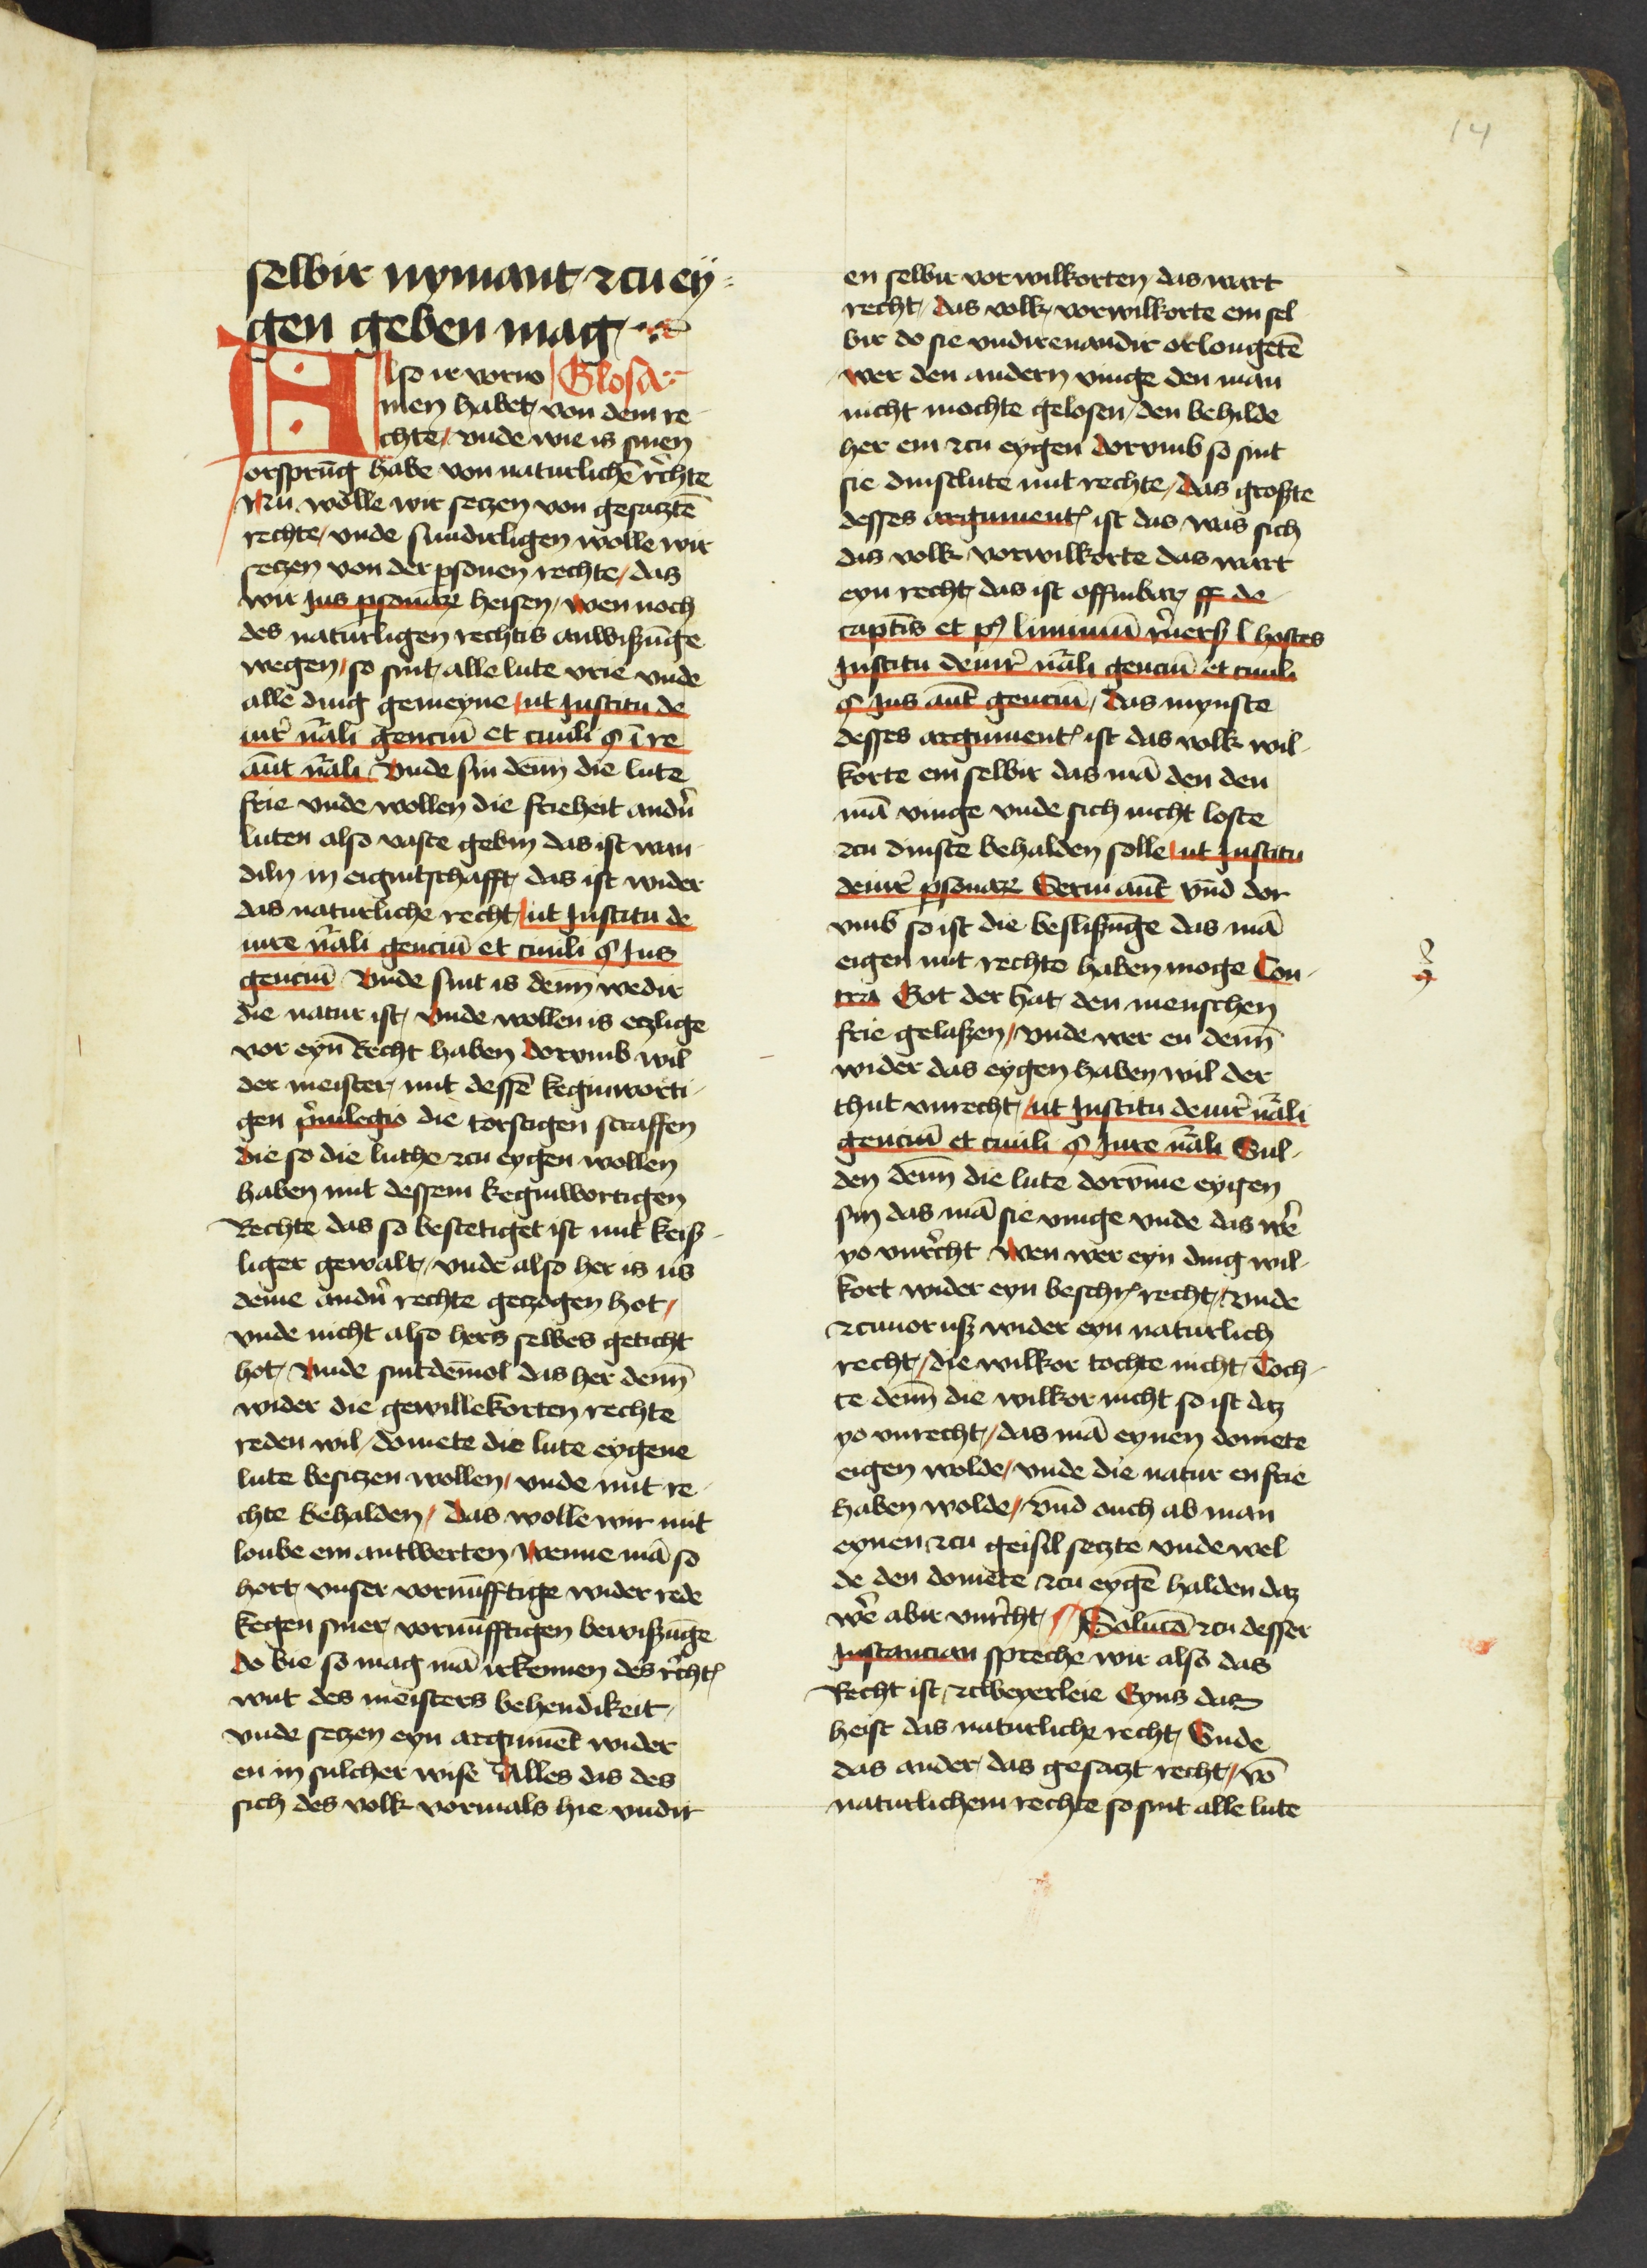 14
selbir nymant zcu ey⸗
gen geben mag
Also ir vorno Glosa
men habet von dem re
chte / vnde wie is sinen
orsprūg habe von naturlichē rechte
Nu wolle wir seczen von gesacztē
rechte / vnde sundirligen wolle wir
seczen von der psonen rechte / das
wir Jus psonarꝫ heisen / wen noch
des naturligen rechtis anwißūge
wegen / so sint alle lute vrie vnde
alle ding gemeyne / ut Institu de
iur̄ nr̄ali genciū et ciuili § i re
aūt nr̄ali Vnde sin denn̄ die lute
frie vnde wollen die frieheit andr̄n
luten also vaste gebin das ist wan
diln in eigintschafft / das ist wider
das naturliche recht / ut Institu de
iure nr̄ali genciū et ciuili § Jus
genciū Vnde sint is denn̄ wedir
die natur ist / vnde wollen is eczlige
vor eyn̄ Recht haben Dorvmb wil
der meister / mit dessē keginworti
gen p̄uilegio die torstigen straffen
die so die luthe zcu eygen wollen
haben mit dessem keginwortigen
Rechte das so bestetiget ist mit keiß
liger gewalt / vnde also her is us
deme andr̄n rechte geczogen hot /
vnde nicht also hers selbes geticht
hot / Vnde sintdēmol das her denn̄
wider die gewillekorten rechte
reden wil / domete die lute eygene
lute besiczen wollen / vnde mit re
chte behalden / Das wolle wir mit
loube em antwerten / Wenne mā so
hort / vnser vornūfftige wider rede
kegen siner vornūfftigen bewißūge
Do bie so mag mā irkennen des recht
wnt des meisters behendikeit /
vnde seczen eyn argumēt wider
en in sulcher wise Alles das des
sich des volk vormals hie vndir
en selbir vorwilkorten das wart
recht / das volk / vorwilkorte em sel
bir do sie vndirenandir orlougetē
wer den andern vinge den man
nicht mochte gelosen / den behilde
her em zcu eygen Dorvmb so sint
sie dinstlute mit rechte / Das großte
desses argument ist das was sich
das volk vorwilkorte das wart
eyn recht / das ist offinbar / ff de
captis et p9 liminiū reuers l hostes
Institu de iur̄ nr̄ali genciū et ciuili
§ Jus aūt genciū / Das mynste
desses argument ist das volk wil
korte em selbir das mā den den
mā vinge vnde sich nicht loste
zcu dinste behalden solle / ut Institu
de iur̄ psonarꝫ Serui aūt vn̄d dor
vmb so ist die beslißūge das mā
eigen mit rechte haben moge Con
tra Got der hat / den menschen
frie gelaßen / vnde wer en denn̄
wider das eygen haben wil der
thut vnrecht / ut Institu de iur̄ nr̄ali
genciū et ciuili § Jure nr̄ali Sul
den denn̄ die lute dorv̄me eygen
sin das mā sie vinge vnde das wer̄
yo vnrecht Wen wer eyn ding wil
kort wider eyn beschr recht / Vnde
zcuuor uß wider eyn naturlich
recht / die wilkor tochte nicht / Toch
te denn̄ die wilkor nicht so ist daz
yo vnrecht / das mā eynen domete
eigen wolde / vnde die natur en frie
haben wolde / vn̄d ouch ab man
eynen zcu geisil seczte vnde wel
de den domete zcu eygē halden daz
wer̄ abir vnrecht / Solucō zcu desser
Instancian spreche wir also das
Recht ist / zcweyerleie Eyns das
heist das naturliche recht / Vnde
das ander / das gesaczt recht / vō
naturlichem rechte so sint alle lute